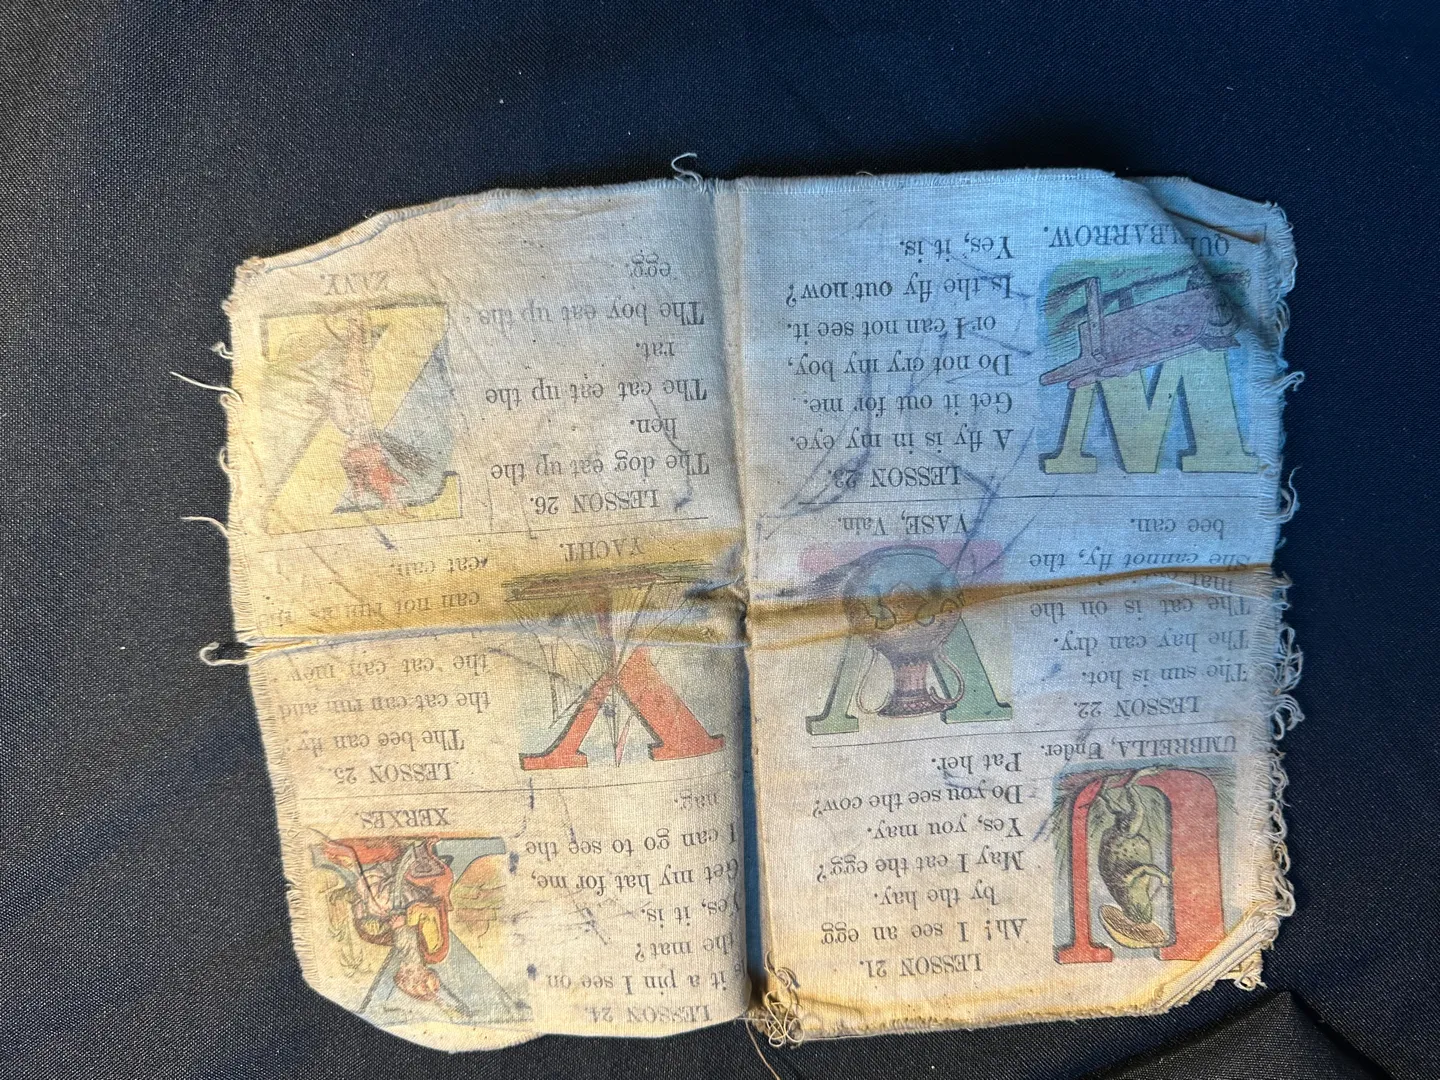 LESSON 21.
Ah! I see an egg
by the hay.
May I eat the egg?
Yes, you may.
Do you see the cow?
Pat her.
UMBRELLA, Under.
LESSON 22.
The sun is hot.
The hay can dry.
The cat is on the
mat
She cannot fly, the
bee can.
VASE, Vain.
LESSON 23.
A fly is in my eye.
Get it out for me.
Do not cry my boy,
or I can not see it.
Is the fly out now?
Yes, it is.
QU
LBARROW.
LESSON 24.
is it a pin I see on
the mat?
Yes, it is.
Get my hat for me,
I can go to see the
nag.
XERXES.
LESSON 25.
The bee can fly,
the cat can run and
the cat can mew
can not run as
cat can.
YACHT.
LESSON 26.
The dog eat up the
hen.
The cat eat up the
rat.
The boy eat up the
egg.
ZANY.